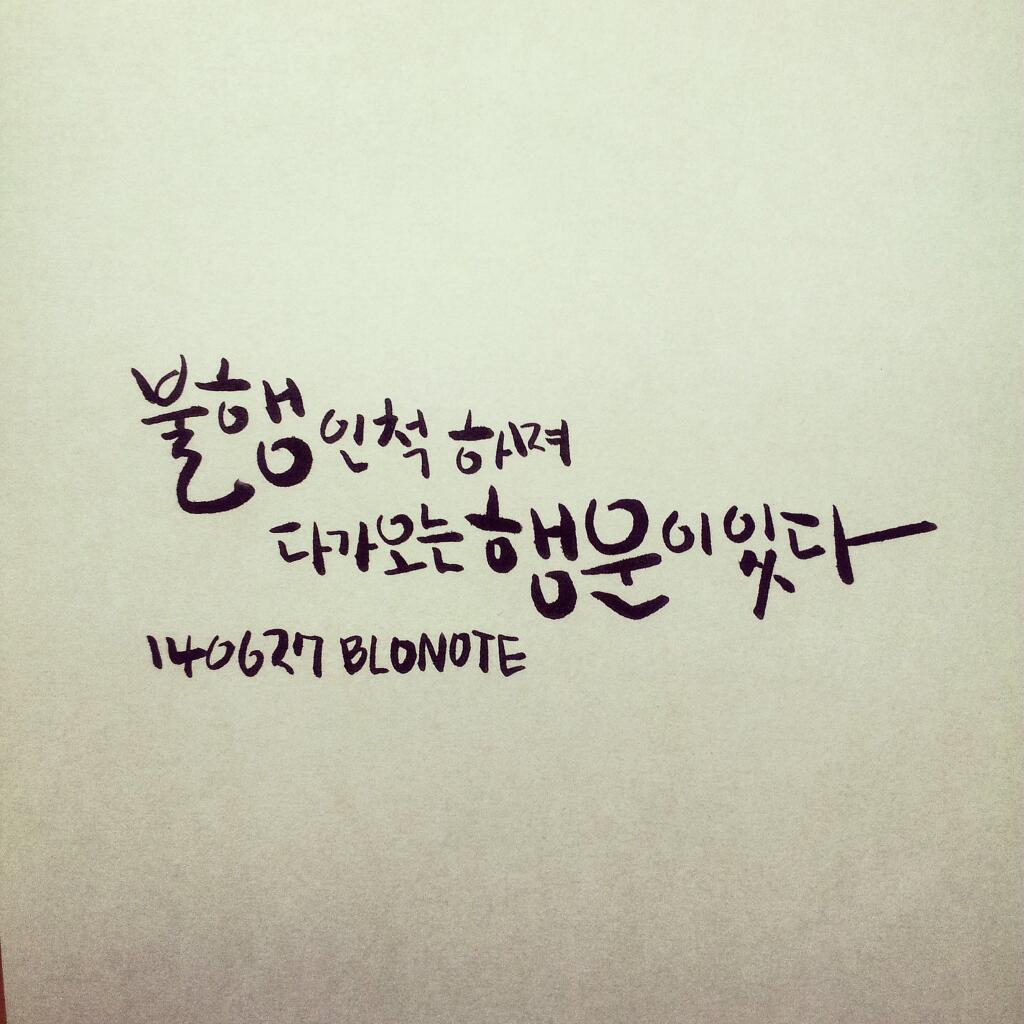 불행인척 하며
다가오는 행운이 있다
140627 BLONOTE